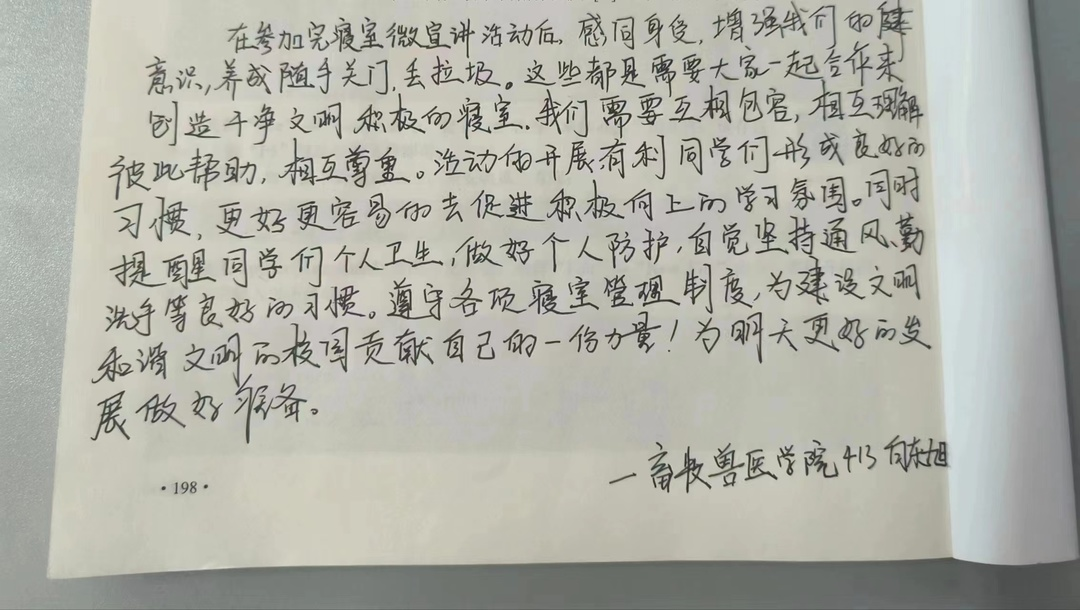 在参加完寝室微宣讲活动后，感同身受，增强我们的健
意识，养成随手关门，丢垃圾。这些都是需要大家一起合作来
创造干净文明积极的寝室。我们需要互相包容，相互理解
彼此帮助，相互尊重。活动的开展有利同学们形成良好的
习惯，更好更容易的去促进积极向上的学习氛围。同时
提醒同学们个人卫生，做好个人防护，自觉坚持通风、勤
洗手等良好的习惯。遵守各项寝室管理制度，为建设文明
和谐文明的校园贡献自己的一份力量！为明天更好的发
展做好准备。
一畜牧兽医学院413 向东旭
·198·